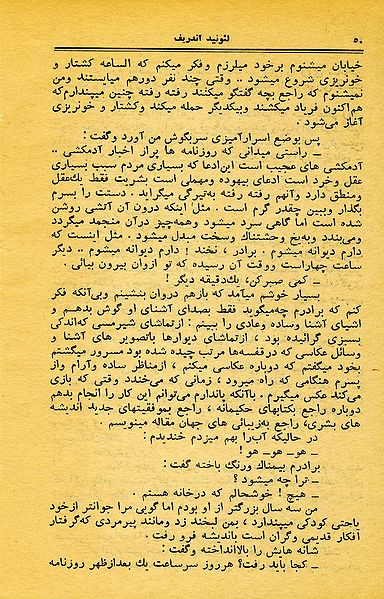 ۵۰
لئونید آندریف
خیابان میشنوم برخود میلرزم وفکر میکنم که الساعه کشتار و
خونریزی شروع میشود .. وقتی چند نفر دورهم میایستند ومن
نمیشنوم که راجع بچه گفتگو میکنند رفته رفته چنین میپندارم که
هم‌اکنون فریاد میکشند وبیکدیگر حمله میکند وکشتار و خونریزی
آغاز می‌شود .
پس بوضع اسرارآمیزی سربگوش من آورد وگفت :
ــ راستی میدانی که روزنامه ها پراز اخبار آدمکشی ..
آدمکشی های عجیب است این‌ادعا که بسیاری مردم سبب بسیاری
عقل وخرد است ادعای بیهوده ومهملی است بشریت فقط یك‌عقل
ومنطق دارد وآنهم رفته رفته به‌تیرگی میگراید . دستت را بسرم
بگذار وببین چقدر گرم است . مثل اینکه درون آن آتشی روشن
شده است اما گاهی سرد میشود وهمه‌چیز درآن منجمد میگردد
ومی‌بندد وبه‌یخ وحشتناك وسخت مبدل میشود . مثل اینست که
دارم دیوانه میشوم . برادر ، نخند ! دارم دیوانه میشوم .. دیگر
ساعت چهاراست ووقت آن رسیده که تو ازوان بیرون بیائی .
ــ کمی صبرکن، یك‌دقیقه دیگر !
بسیار خوشم میآمد که بازهم دروان بنشینم وبی‌آنکه فکر
کنم که برادرم چه‌میگوید فقط بصدای آشنای او گوش بدهم و
اشیای آشنا وساده وعادی را ببینم : ازتماشای شیرمسی که‌اندکی
بسبزی گرائیده بود ، ازتماشای دیوارها باتصویر های آشنا و
وسائل عکاسی که درقفسه‌ها مرتب چیده شده بود مسرور میگشتم
بخود میگفتم که دوباره عکاسی میکنم ، ازمناظر ساده وآرام واز
پسرم هنگامی که راه میرود ، زمانی که می‌خندد وقتی که بازی
می‌کند عکس میگیرم . باآنکه پاندارم می‌توانم این کار را انجام بدهم
دوباره راجع بکتابهای حکیمانه ، راجع بموفقیتهای جدید اندیشه
های بشری، راجع به‌زیبائی های جهان مقاله مینویسم .
در حالیکه آب‌را بهم میزدم خندیدم :
ــ هو ــ هو ــ هو !
برادرم بیمناك ورنگ باخته گفت :
ــ ترا چه میشود ؟
ــ هیچ ! خوشحالم که درخانه هستم .
من سه سال بزرگتر از او بودم اما گویی مرا جوانتر ازخود
یاحتی کودکی میپندارد ، بمن لبخند زد ومانند پیرمردی که‌گرفتار
افکار قدیمی وگران است باندیشه فرو رفت .
شانه هایش را بالاانداخته وگفت :
ــ کجا باید رفت؟ هرروز سرساعت یك بعدازظهر روزنامه